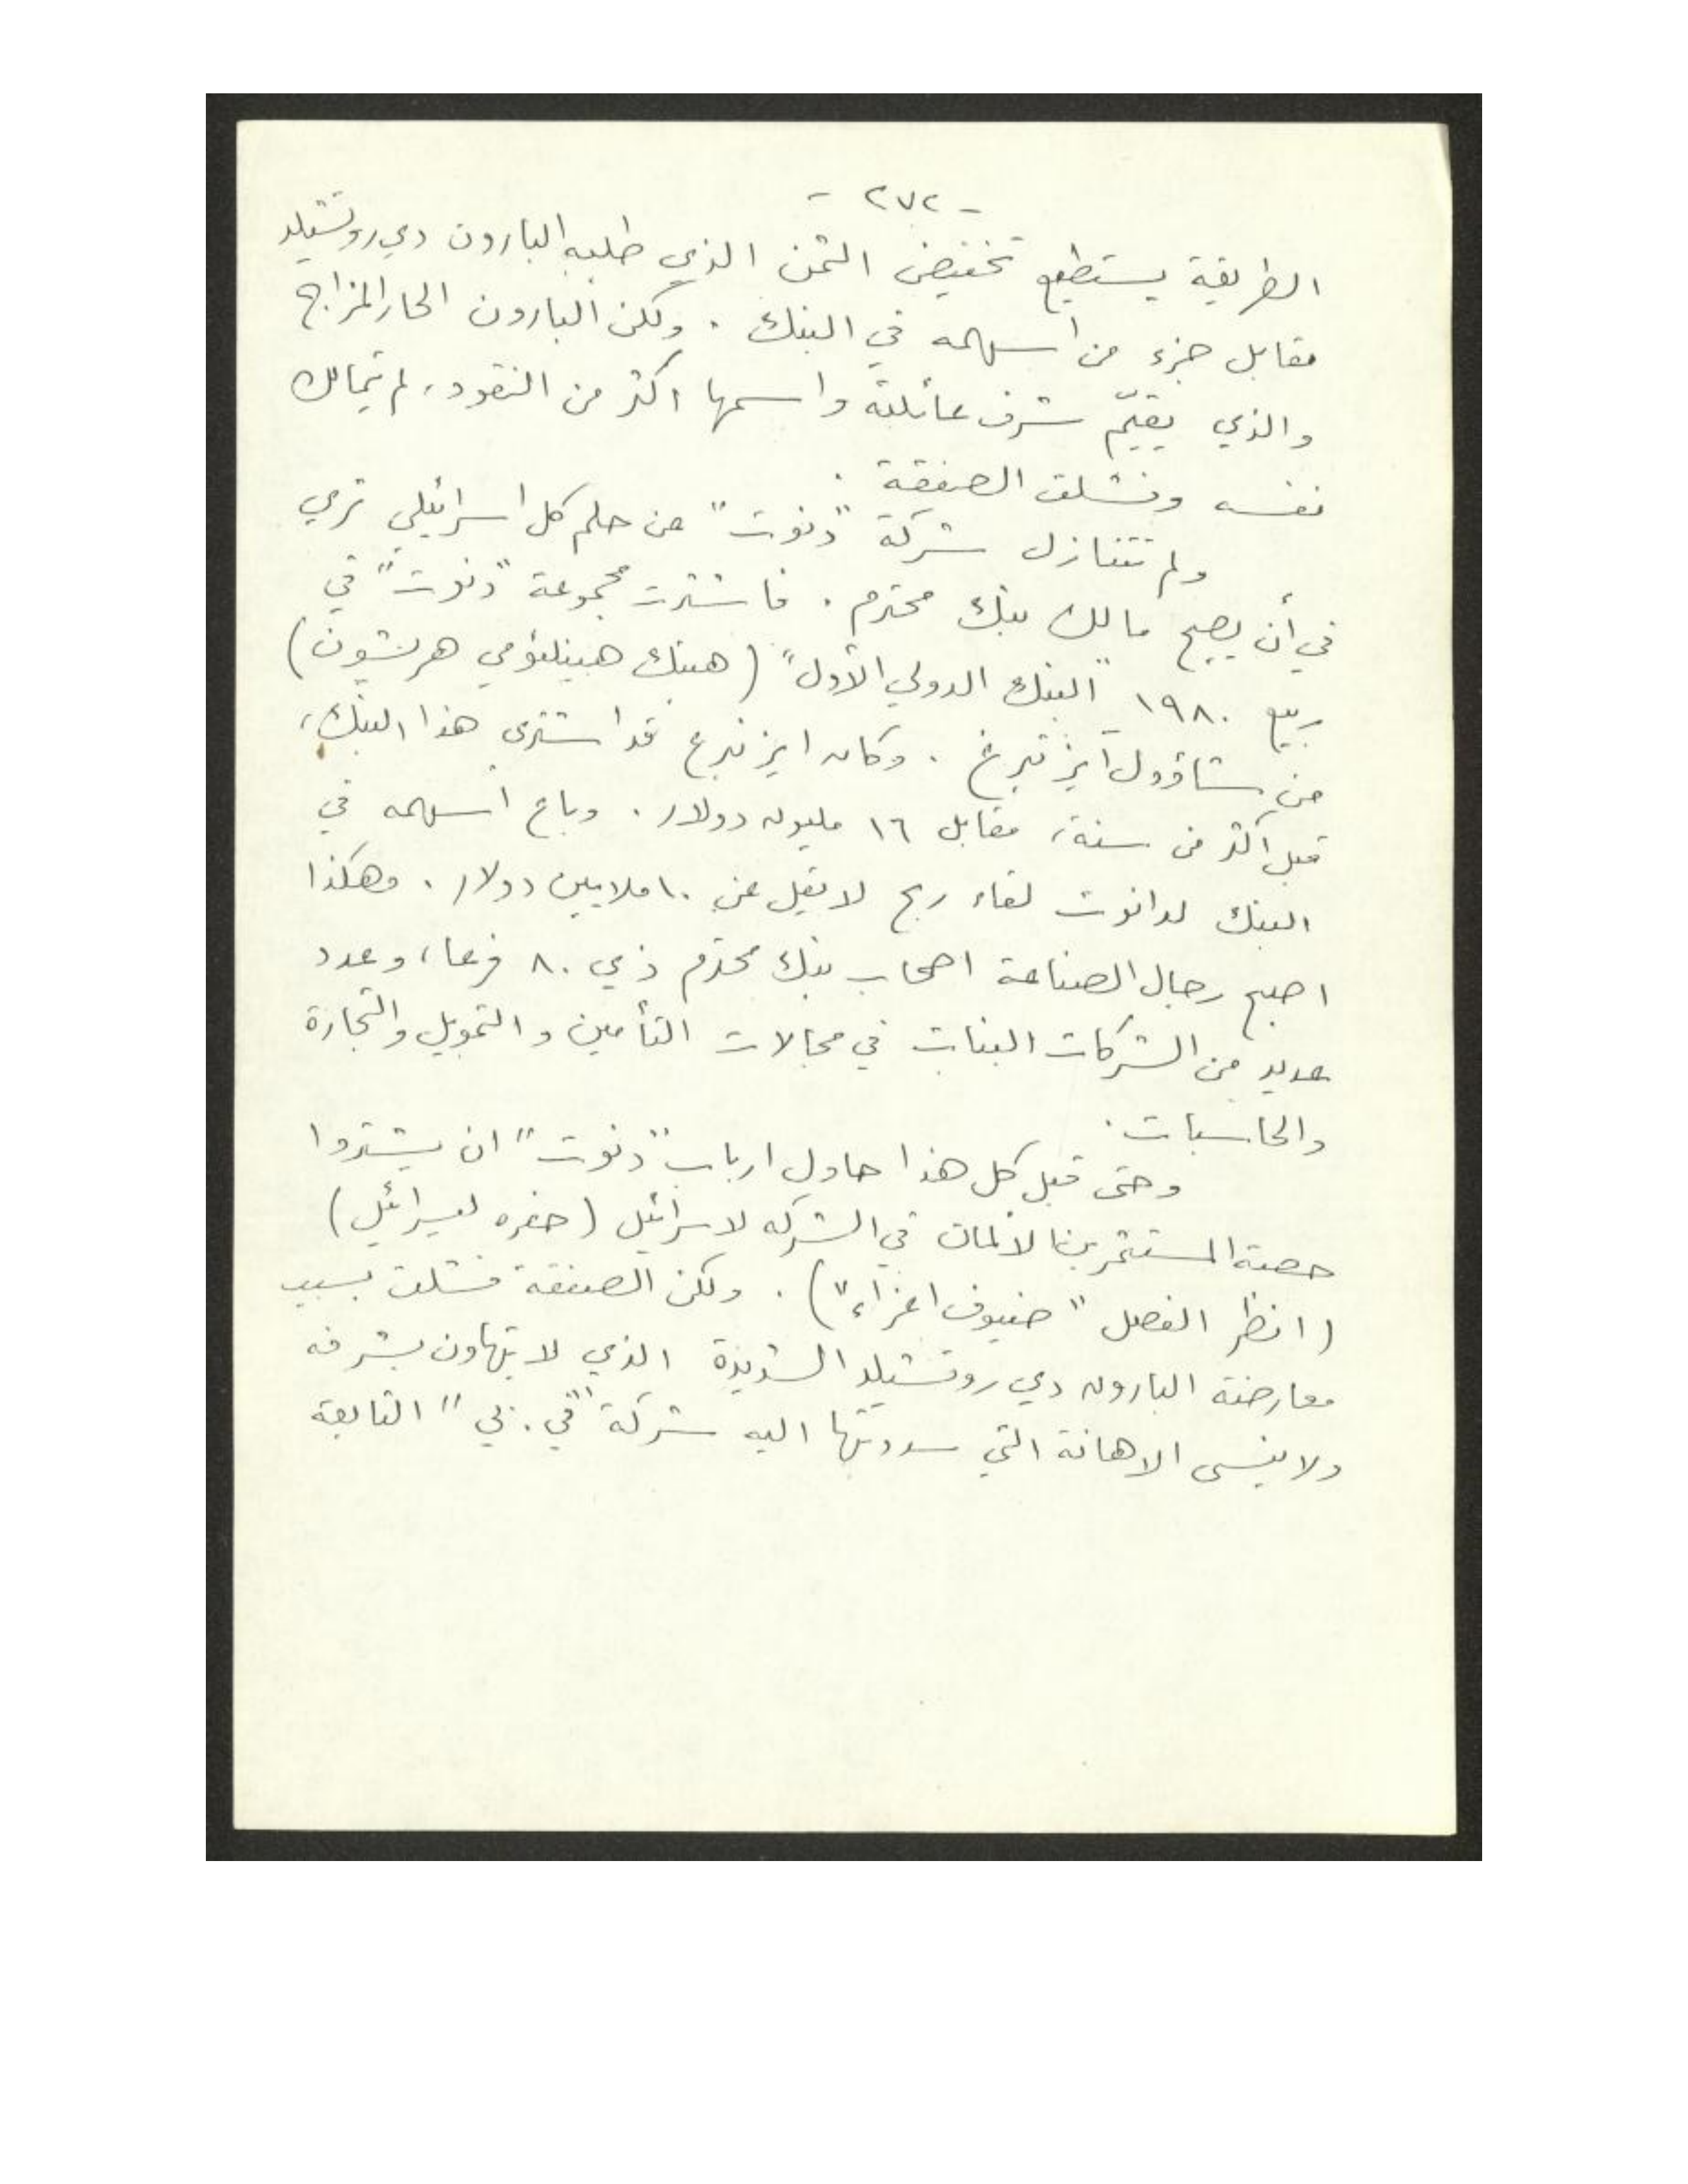 - ٢٧٢ -
الطريقة يستطيع تخفيض الثمن الذي طلبه البارون دي روتشيلد
مقابل جزء من اسهمه في البنك . ولكن البارون الحار المزاج
والذي يقيّم شرف عائلته واسمها اكثر من النقود، لم يتمالك
نفسه وفشلت الصفقة .
ولم تتنازل شركة "دنوت" عن حلم كل اسرائيلي ثري
في أن يصبح مالك بنك محترم . فاشترت مجموعة "دنوت" في
ربيع ١٩٨٠ "البنك الدولي الأول" (هبنك هبينلئومي هريشون)
من شاؤول ايزنبرغ . وكان ايزنبرغ قد اشترى هذا البنك،
قبل اكثر من سنة، مقابل ١٦ مليون دولار . وباع اسهمه في
البنك لدانوت لقاء ربح لا يقل عن ١٠ ملايين دولار . وهكذا
اصبح رجال الصناعة اصحاب بنك محترم ذي ٨٠ فرعا، وعدد
عديد من الشركات البنات في مجالات التأمين والتمويل والتجارة
والحاسبات .
وحتى قبل كل هذا حاول ارباب "دنوت" ان يشتروا
حصة المستثمرين الألمان في الشركه لاسرائيل (حفره ليسرائيل)
(انظر الفصل "ضيوف اعزاء") . ولكن الصفقة فشلت بسبب
معارضة البارون دي روتشيلد الشديدة الذي لا يتهاون بشرفه
ولا ينسى الاهانة التي سددتها اليه شركة "في . بي" التابعة